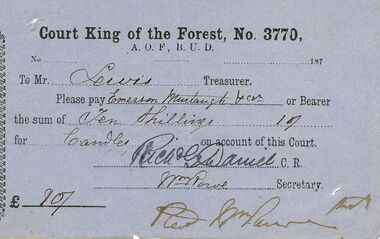 Court King of the Forest, No. 3770,
A. O. F., B. U. D.
No 187
To Mr. Lewis Treasurer.
Please pay Emerson Murtaugh & Co or Bearer
the sum of Ten Shillings 10/
for Candles on account of this Court.
Rich'd G. Daniell C. R.
Wm Rowe Secretary.
£ 10/
Wm Rowe